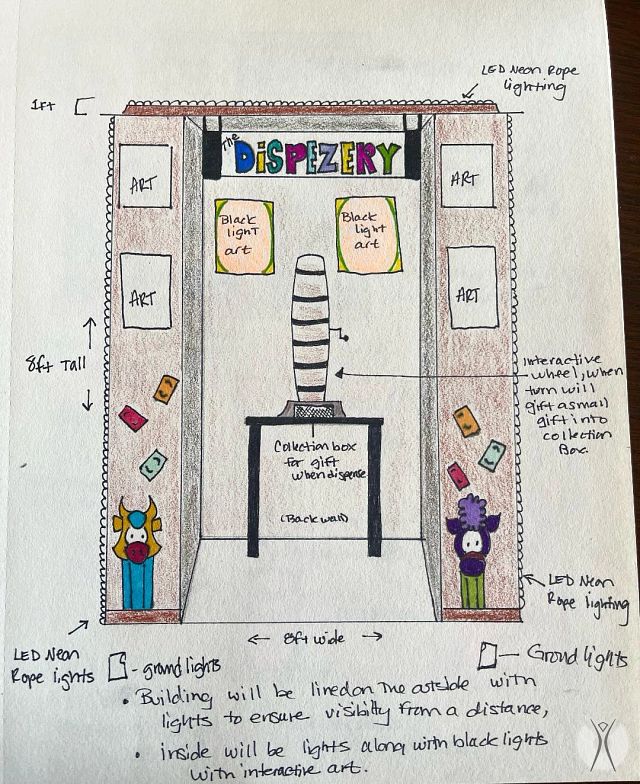 LED Neon Rope
lighting
1ft
The
DiSPEZERY
ART
ART
Black
light
art
Black
light
art
ART
ART
8ft Tall
Interactive
wheel, when
turn will
gift a small
gift into
collection
Box.
Collection box
for gift
when dispense
(Back wall)
LED Neon
Rope lighting
8ft wide
LED Neon
Rope lights
- ground lights
- Ground lights
• Building will be lined on the outside with
lights to ensure visibilty from a distance,
• inside will be lights along with black lights
with interactive art.